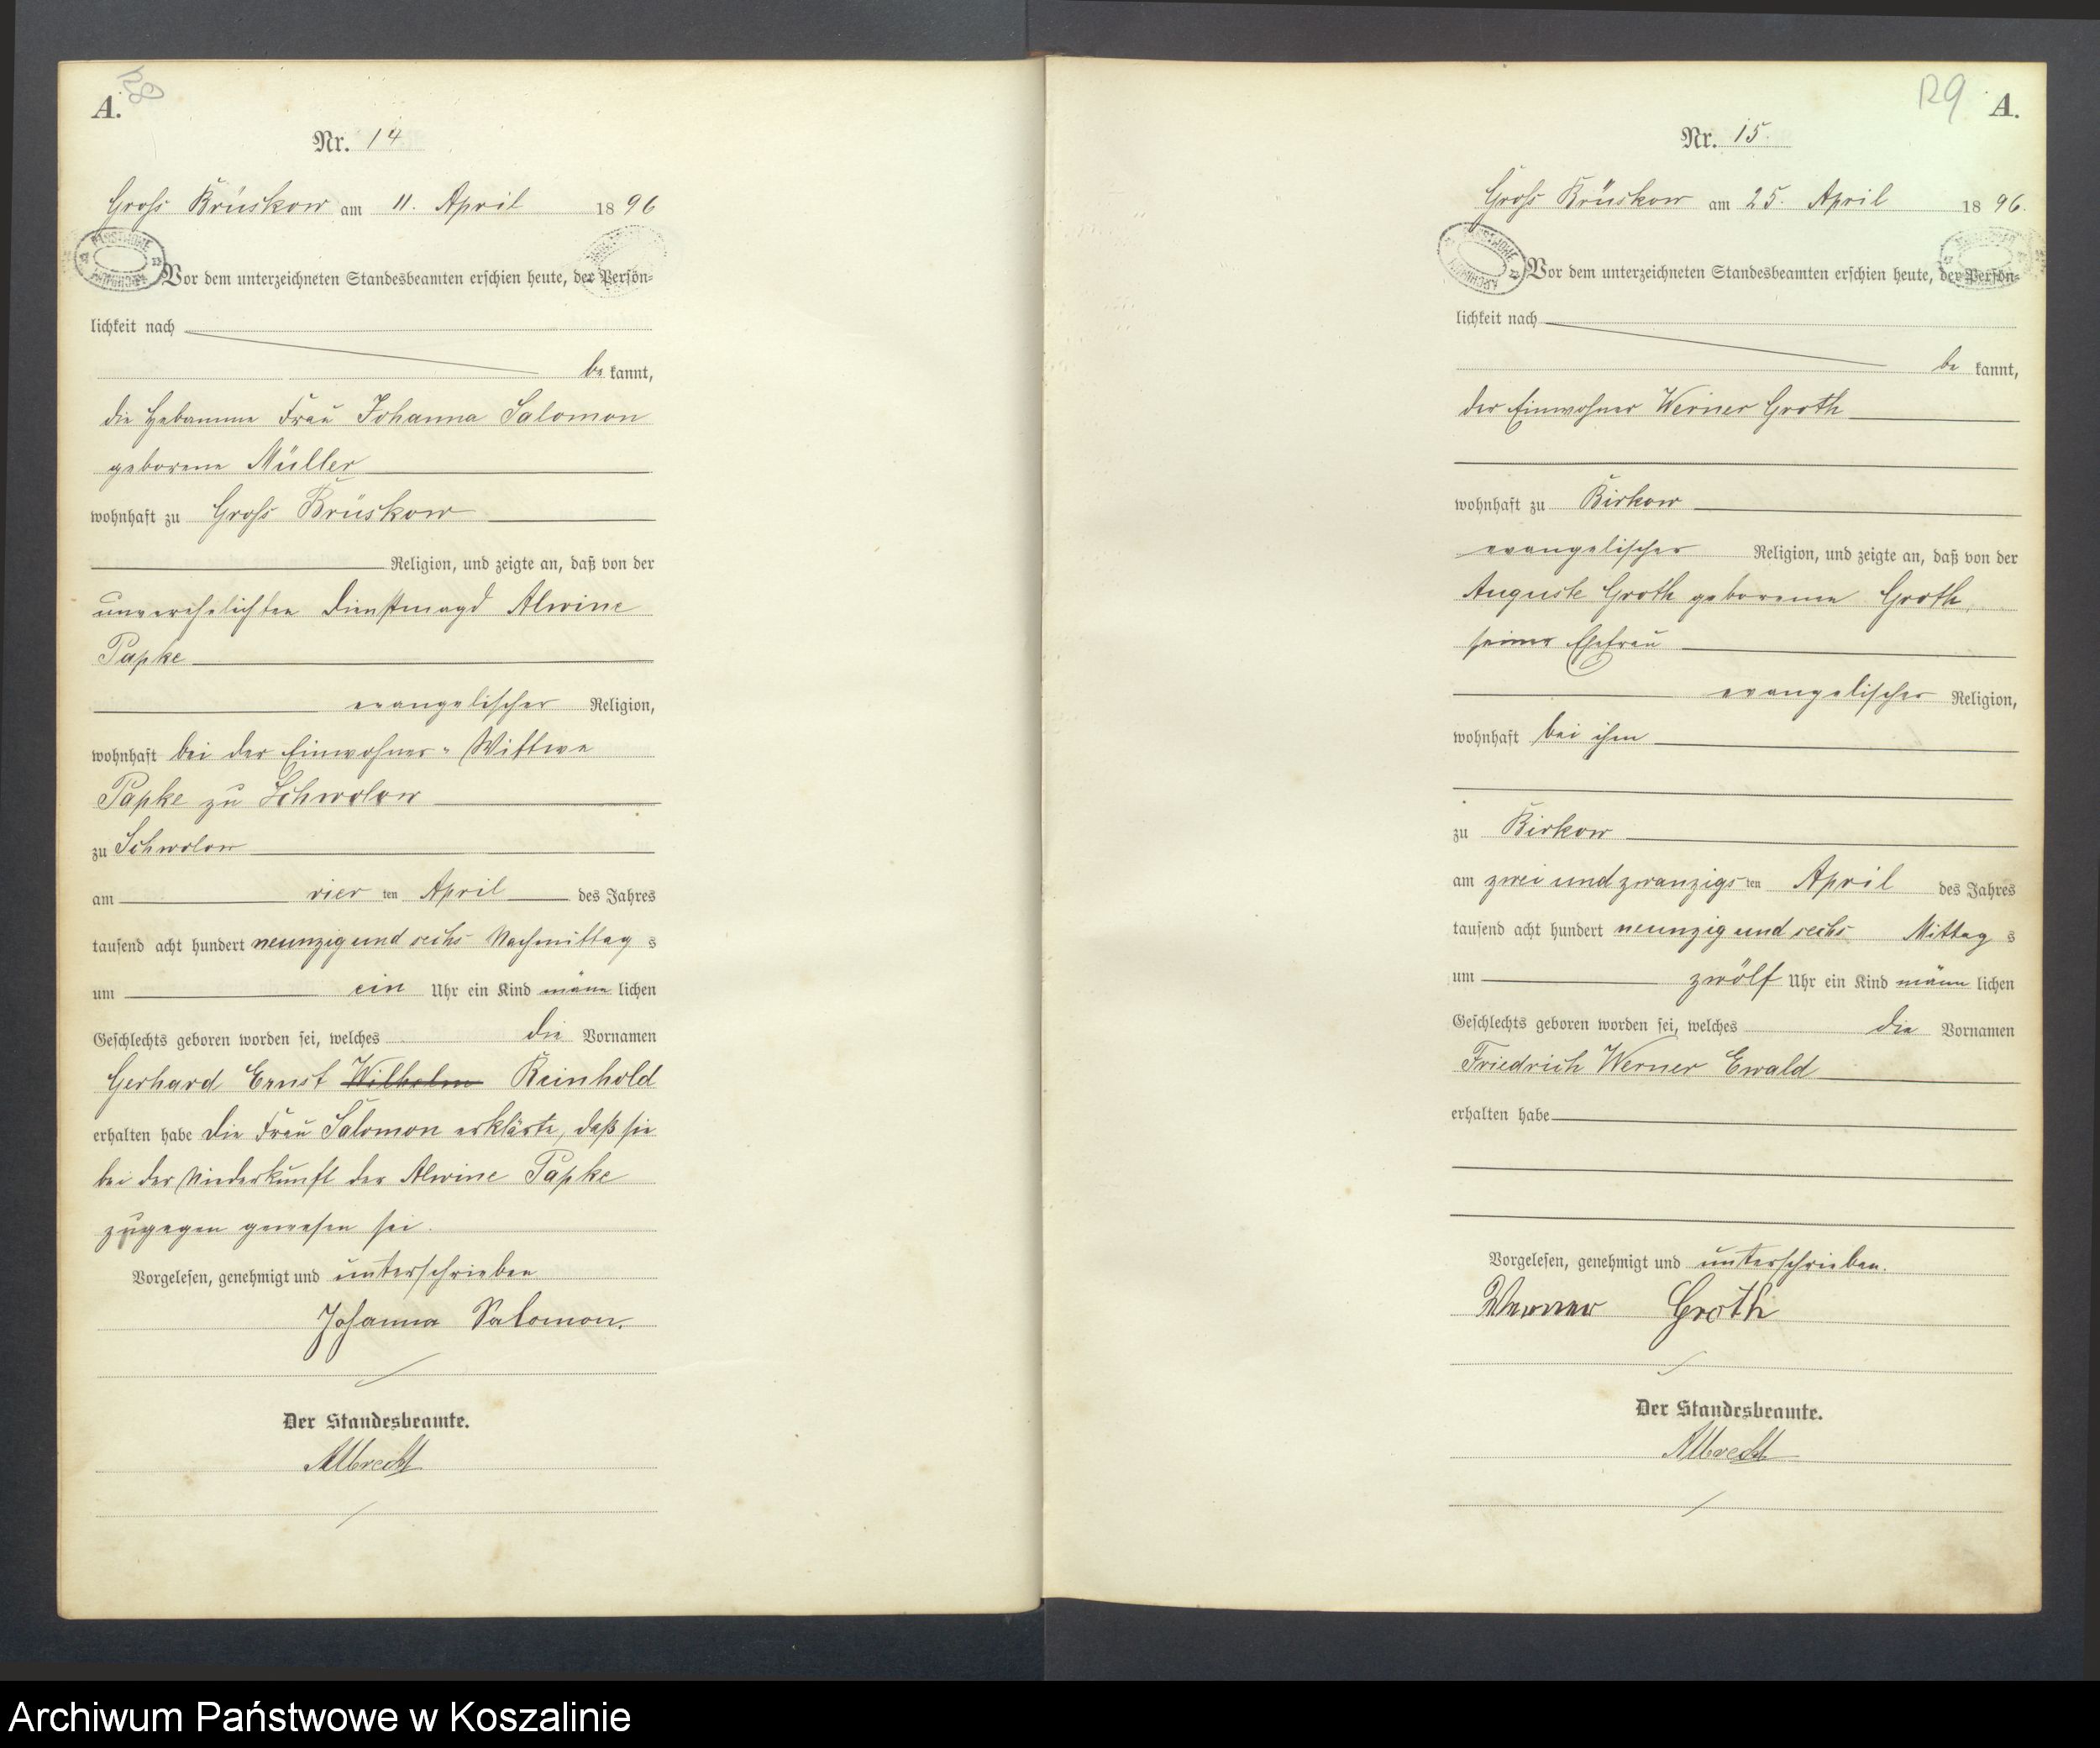 A.
Nr. 14
Gross Brüskow am 11. April 1896
Vor dem unterzeichneten Standesbeamten erschien heute, der Persön=
lichkeit nach
be kannt,
die Hebamme Frau Johanna Salomon
geborene Müller
wohnhaft zu Gross Brüskow
Religion, und zeigte an, daß von der
unverehelichten Dienstmagd Alwine
Papke
evangelischer Religion,
wohnhaft bei der Einwohner-Wittwe
Papke zu Schwolow
zu Schwolow
am vier ten April des Jahres
tausend acht hundert neunzig und sechs Nachmittag s
um ein Uhr ein Kind männ lichen
Geschlechts geboren worden sei, welches die Vornamen
Gerhard Ernst Wilhelm Reinhold
erhalten habe die Frau Salomon erklärte, daß sie
bei der Niederkunft der Alwine Papke
zugegen gewesen sei.
Vorgelesen, genehmigt und unterschrieben
Johanna Salomon.
Der Standesbeamte.
Albrecht
129 A.
Nr. 15.
Gross Brüskow am 25. April 1896.
Vor dem unterzeichneten Standesbeamten erschien heute, der Persön=
lichkeit nach
be kannt,
der Einwohner Werner Groth
wohnhaft zu Birkow
evangelischer Religion, und zeigte an, daß von der
Auguste Groth geborenen Groth,
seiner Ehefrau
evangelischer Religion,
wohnhaft bei ihm
zu Birkow
am zwei und zwanzigs ten April des Jahres
tausend acht hundert neunzig und sechs Mittag s
um zwölf Uhr ein Kind männ lichen
Geschlechts geboren worden sei, welches die Vornamen
Friedrich Werner Ewald
erhalten habe
Vorgelesen, genehmigt und unterschrieben.
Werner Groth
Der Standesbeamte.
Albrecht
Archiwum Państwowe w Koszalinie